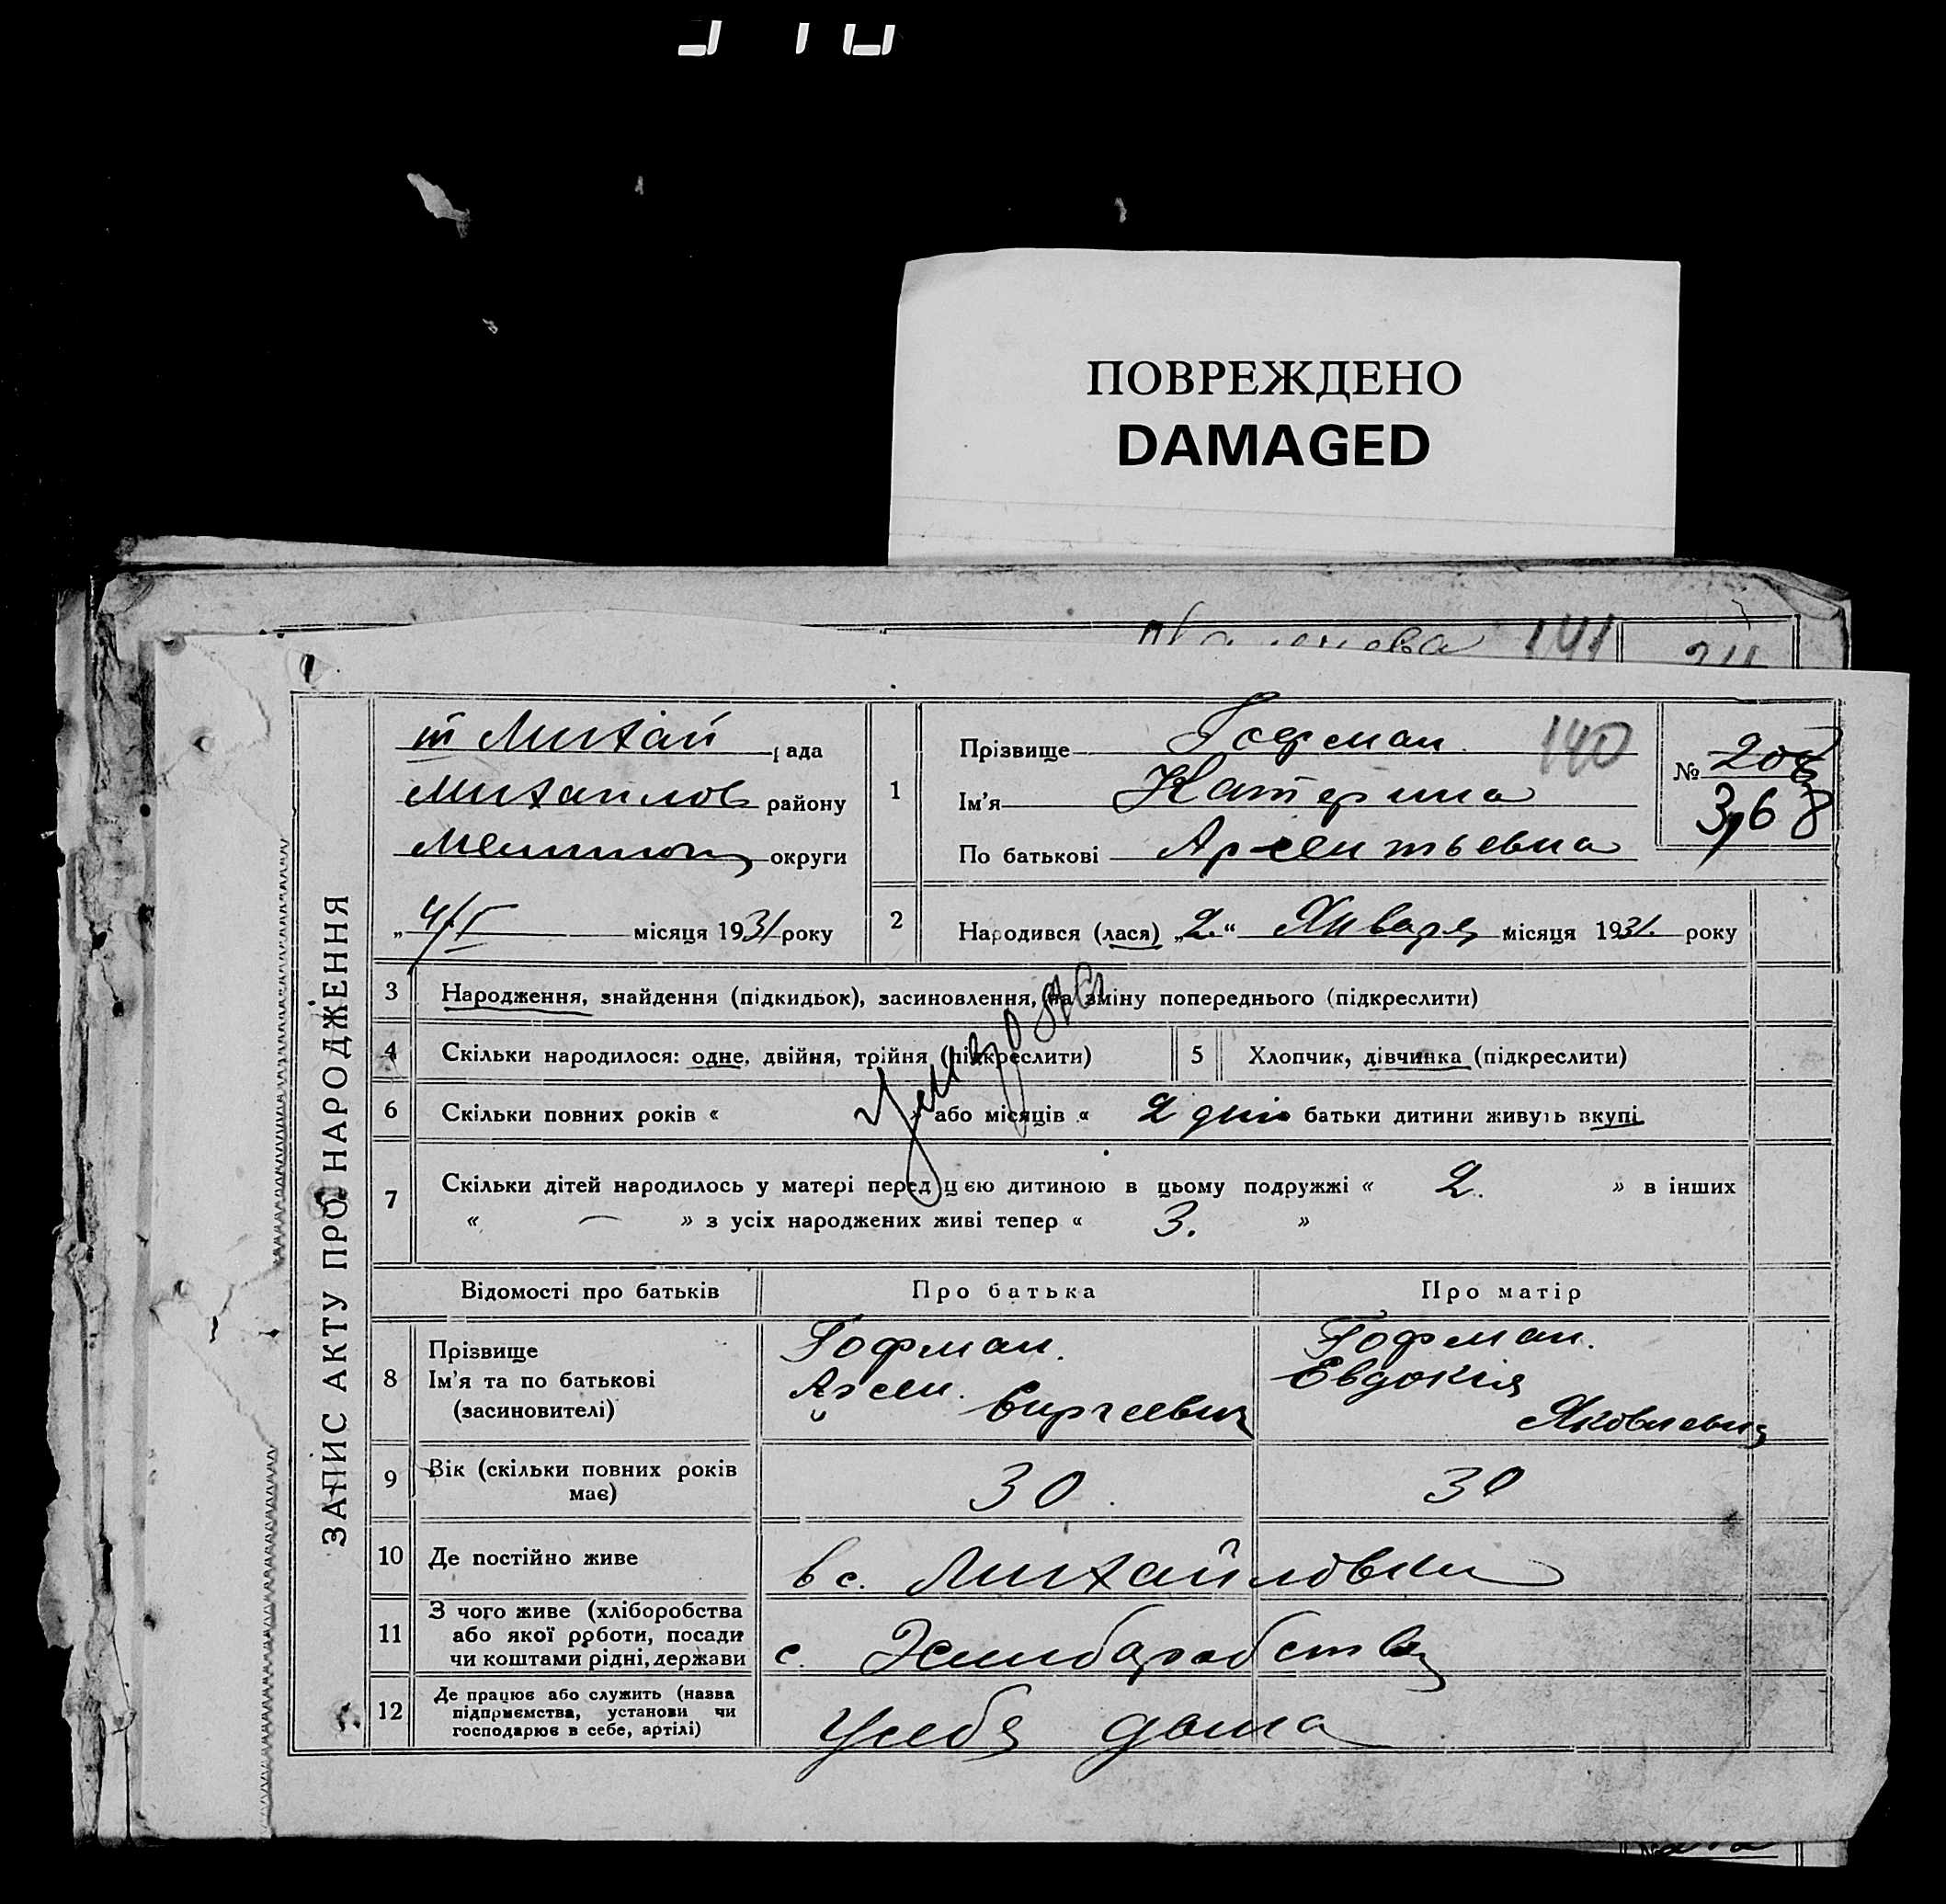 ПОВРЕЖДЕНО
DAMAGED
141
ЗАПИС АКТУ ПРО НАРОДЖЕННЯ
Михай рада
Михайлов району
округи
„4/I місяця 1931 року
1
Прізвище Гофман 140
Ім'я Катерина
По батькові Арсентьевна
№ 208
368
2
Народився (лася) „2.“ Января місяця 1931. року
3 Народження, знайдення (підкидьок), засиновлення, на зміну попереднього (підкреслити)
4 Скільки народилося: одне, двійня, трійня (підкреслити)
5 Хлопчик, дівчинка (підкреслити)
6 Скільки повних років « » або місяців « 2 дня батьки дитини живуть вкупі
7 Скільки дітей народилось у матері перед цією дитиною в цьому подружжі « 2. » в інших
« — » з усіх народжених живі тепер « 3. »
Відомості про батьків Про батька Про матір
8 Прізвище
Ім'я та по батькові
(засиновителі)
Гофман.
Арсен.
Гофман.
Евдокія
Яковлевна
9 Вік (скільки повних років
має)
30. 30
10 Де постійно живе в с. Михайловки
11 З чого живе (хліборобства
або якої роботи, посади
чи коштами рідні, держави
с.
12 Де працює або служить (назва
підприємства, установи чи
господарює в себе, артілі)
у себя дома